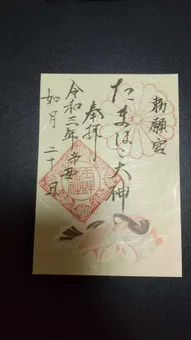 勅願宮
たまほこ大神
奉拝
令和三年 辛丑
如月 二十日